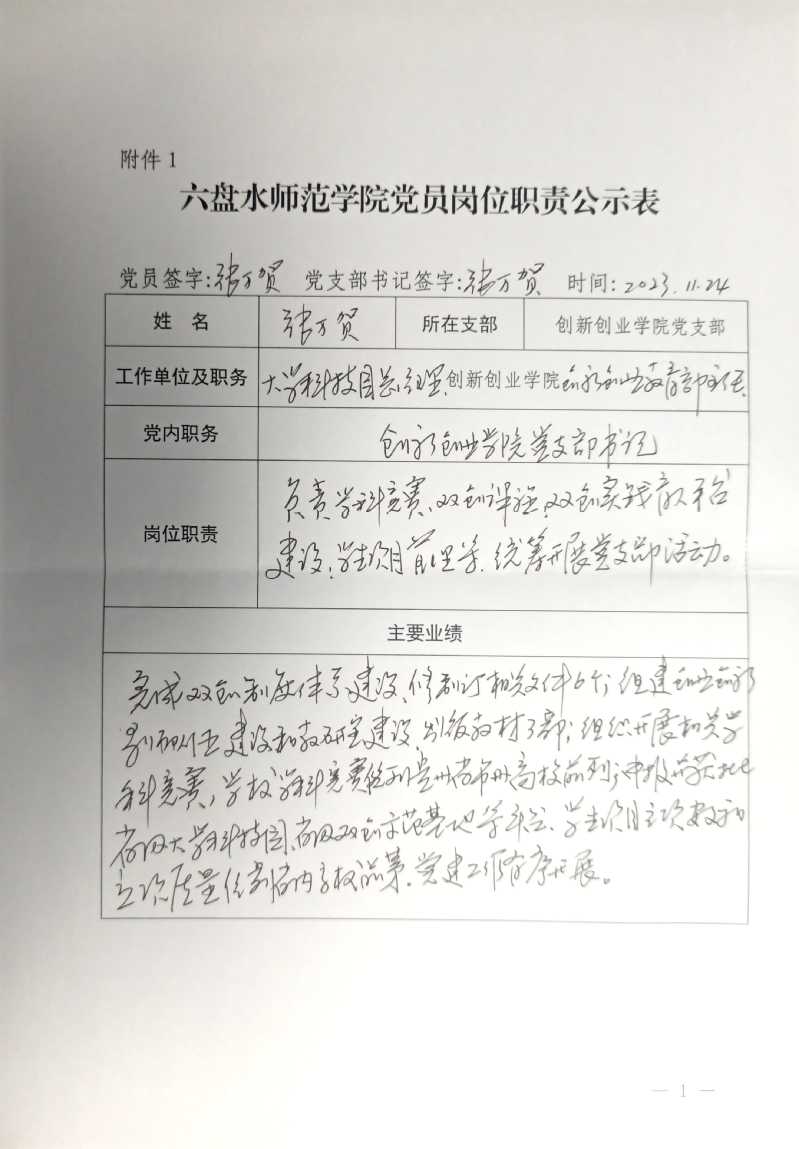 附件 1
六盘水师范学院党员岗位职责公示表
党员签字:张万贺 党支部书记签字:张万贺 时间:2023.11.24
姓 名 张万贺 所在支部 创新创业学院党支部
工作单位及职务 大学科技园总经理、创新创业学院创新创业教育部主任
党内职务 创新创业学院党支部书记
岗位职责
负责学科竞赛、双创课程、双创实践教学平台
建设、学生项目管理等、统筹开展党支部活动。
主要业绩
完成双创制度体系建设、修制订相关文件6个;组建创业创新
建设和教研室建设、出版教材3部;组织开展相关学
科竞赛,学校学科竞赛 贵州省 高校前列;申报并获批
省级大学科技园、省级双创示范基地等平台、学生项目立项数和
立项质量位列省内高校前茅、党建工作有序开展。
— 1 —